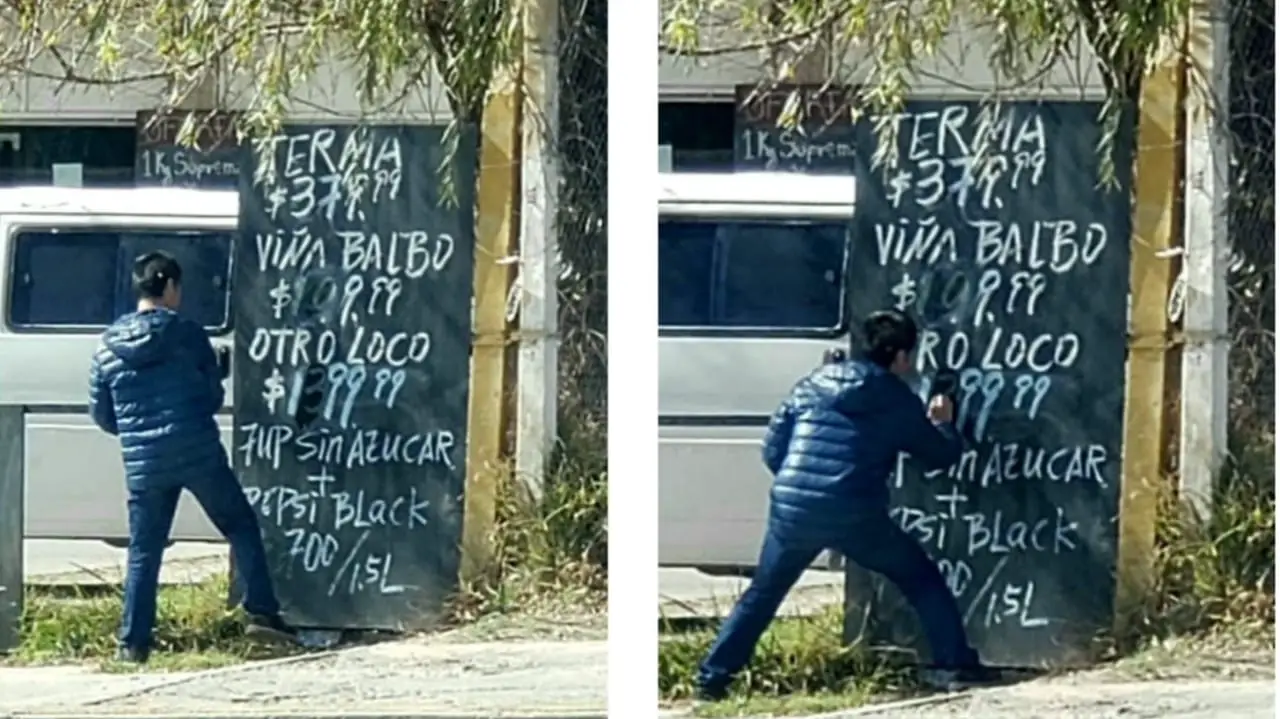 OFERTA
1Kg Suprema
TERMA
$379.99
VIÑA BALBO
$109.99
OTRO LOCO
$1399.99
7UP Sin AZUCAR
+
PEPSI BLACK
700/1.5L
1Kg Suprem
TERMA
$379.99
VIÑA BALBO
$109.99
RO LOCO
99.99
Sin AZUCAR
+
PSI BLACK
00/1.5L